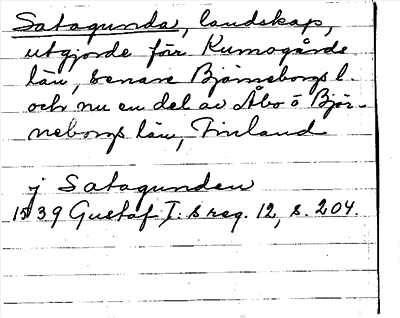 Satagunda, landskap,
utgjorde förr Kumogårds
län, senare Björneborgs l.
och nu en del av Åbo o Björ-
neborgs län, Finland
j Satagunden
1539 Gustaf I:s reg. 12, s. 204.